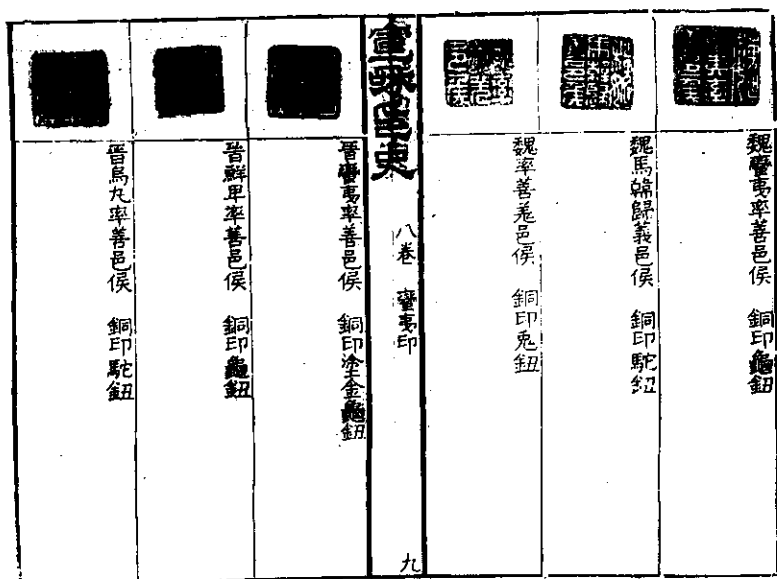 魏蠻夷率善邑侯 銅印龜鈕
魏馬韓歸義邑侯 銅印駝鈕
魏率善羌邑侯 銅印兎鈕
八卷 蠻夷印
九
晉蠻夷率善邑侯 銅印塗金龜鈕
晉鮮卑率善邑侯 銅印龜鈕
晉烏丸率善邑侯 銅印駝鈕